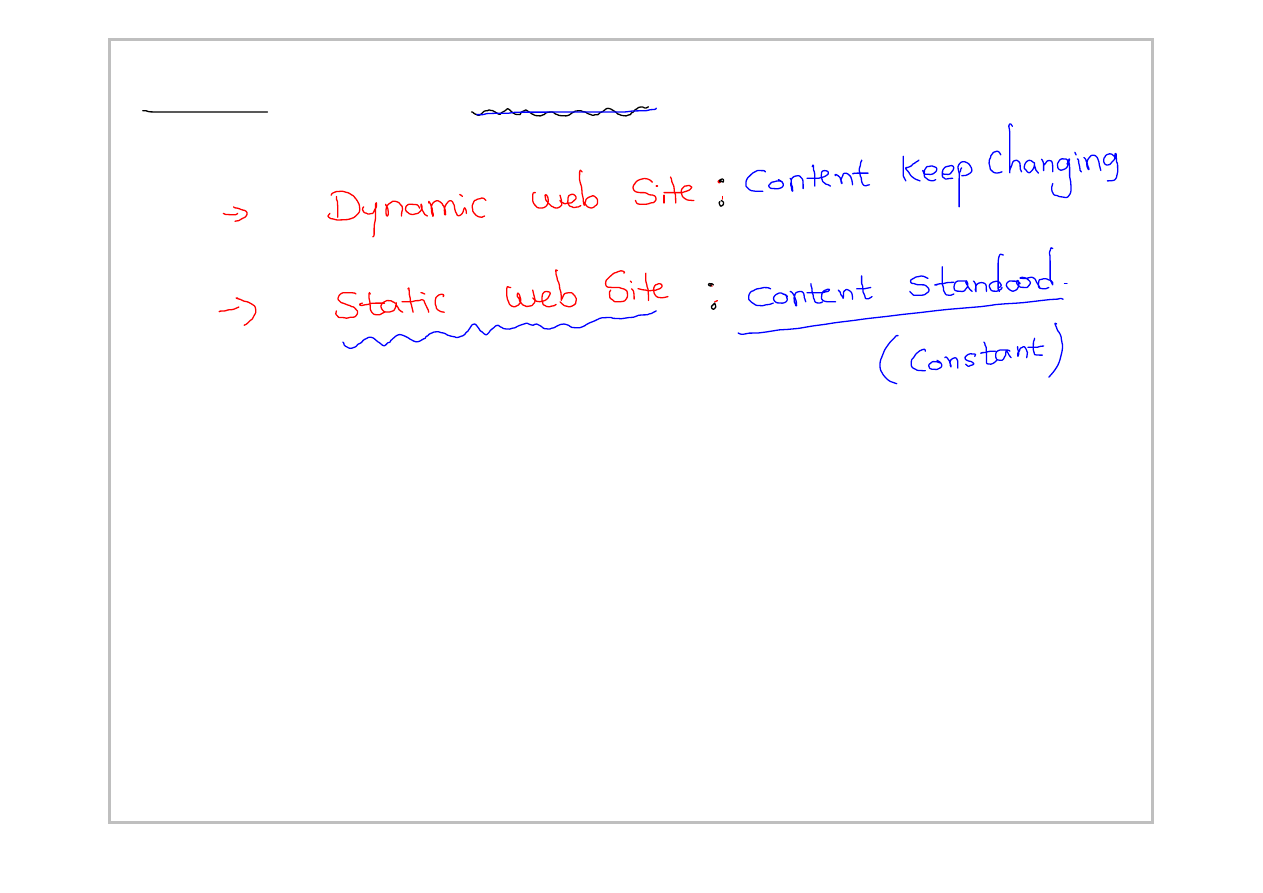 → Dynamic web Site : Content Keep Changing
→ Static web Site : Content Standard.
(Constant)